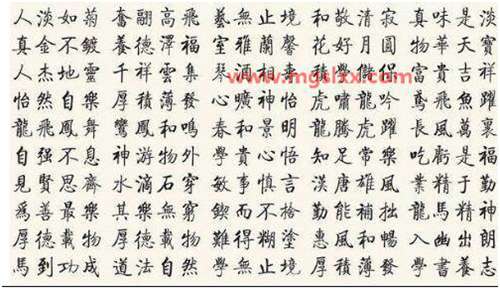 人淡如菊 奮翮高飛 藝無止境 和敬清寂 真味是淡
真金不鍍 養德澤福 室雅蘭馨 花好月圓 物華天寶
www.mgslxx.com
人杰地靈 千祥雲集 琴 富貴吉祥
怡然自樂 厚積薄發 心曠神怡 虎嘯龍吟 鳶飛魚躍
龍飛鳳舞 鸞鳳和鳴 春和景明 龍騰虎躍 長風萬裏
自强不息 神游物外 學貴心悟 知足常樂 吃虧是福
見賢思齊 水滴石穿 敏事慎言 漢唐雄風 業精于勤
爲善最樂 其樂無窮 鍥而不捨 勤能補拙 龍馬精神
厚德載物 厚德載物 難得糊塗 惠風和暢 入幽出朗
馬到功成 道法自然 學無止境 厚積薄發 學書養志